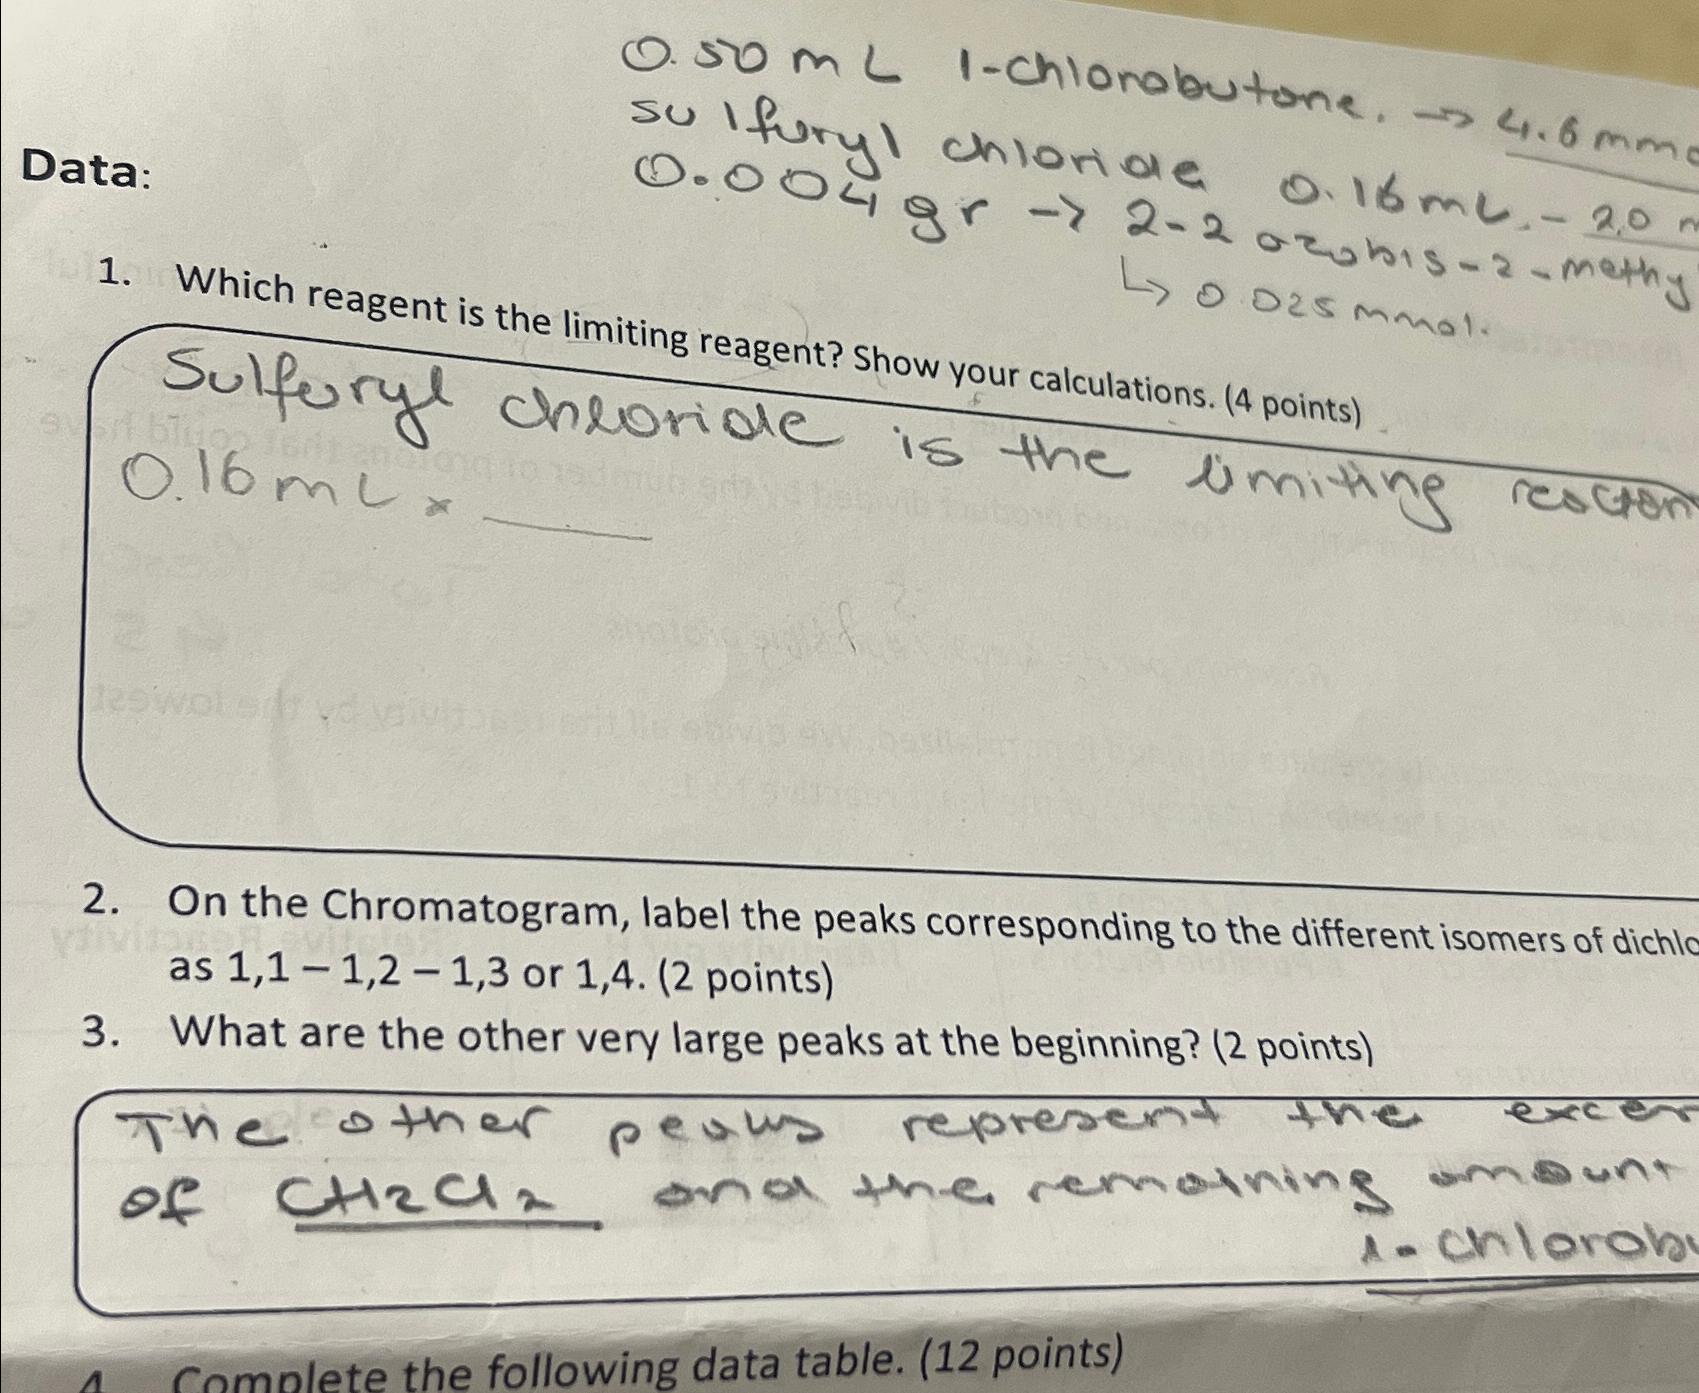 0.50 mL 1-chlorobutane. → 4.6 mmo
sulfuryl chloride 0.16mL. - 2.0 m
Data:
0.004 gr → 2-2 azobis-2-methy
↳ 0.025 mmol.
1. Which reagent is the limiting reagent? Show your calculations. (4 points)
Sulfuryl chloride is the limiting reactan
0.16 mL ×
2. On the Chromatogram, label the peaks corresponding to the different isomers of dichlo
as 1,1 – 1,2 – 1,3 or 1,4. (2 points)
3. What are the other very large peaks at the beginning? (2 points)
The other peaks represent the exces
of CH2Cl2 and the remaining amount
1-chlorobu
4. Complete the following data table. (12 points)